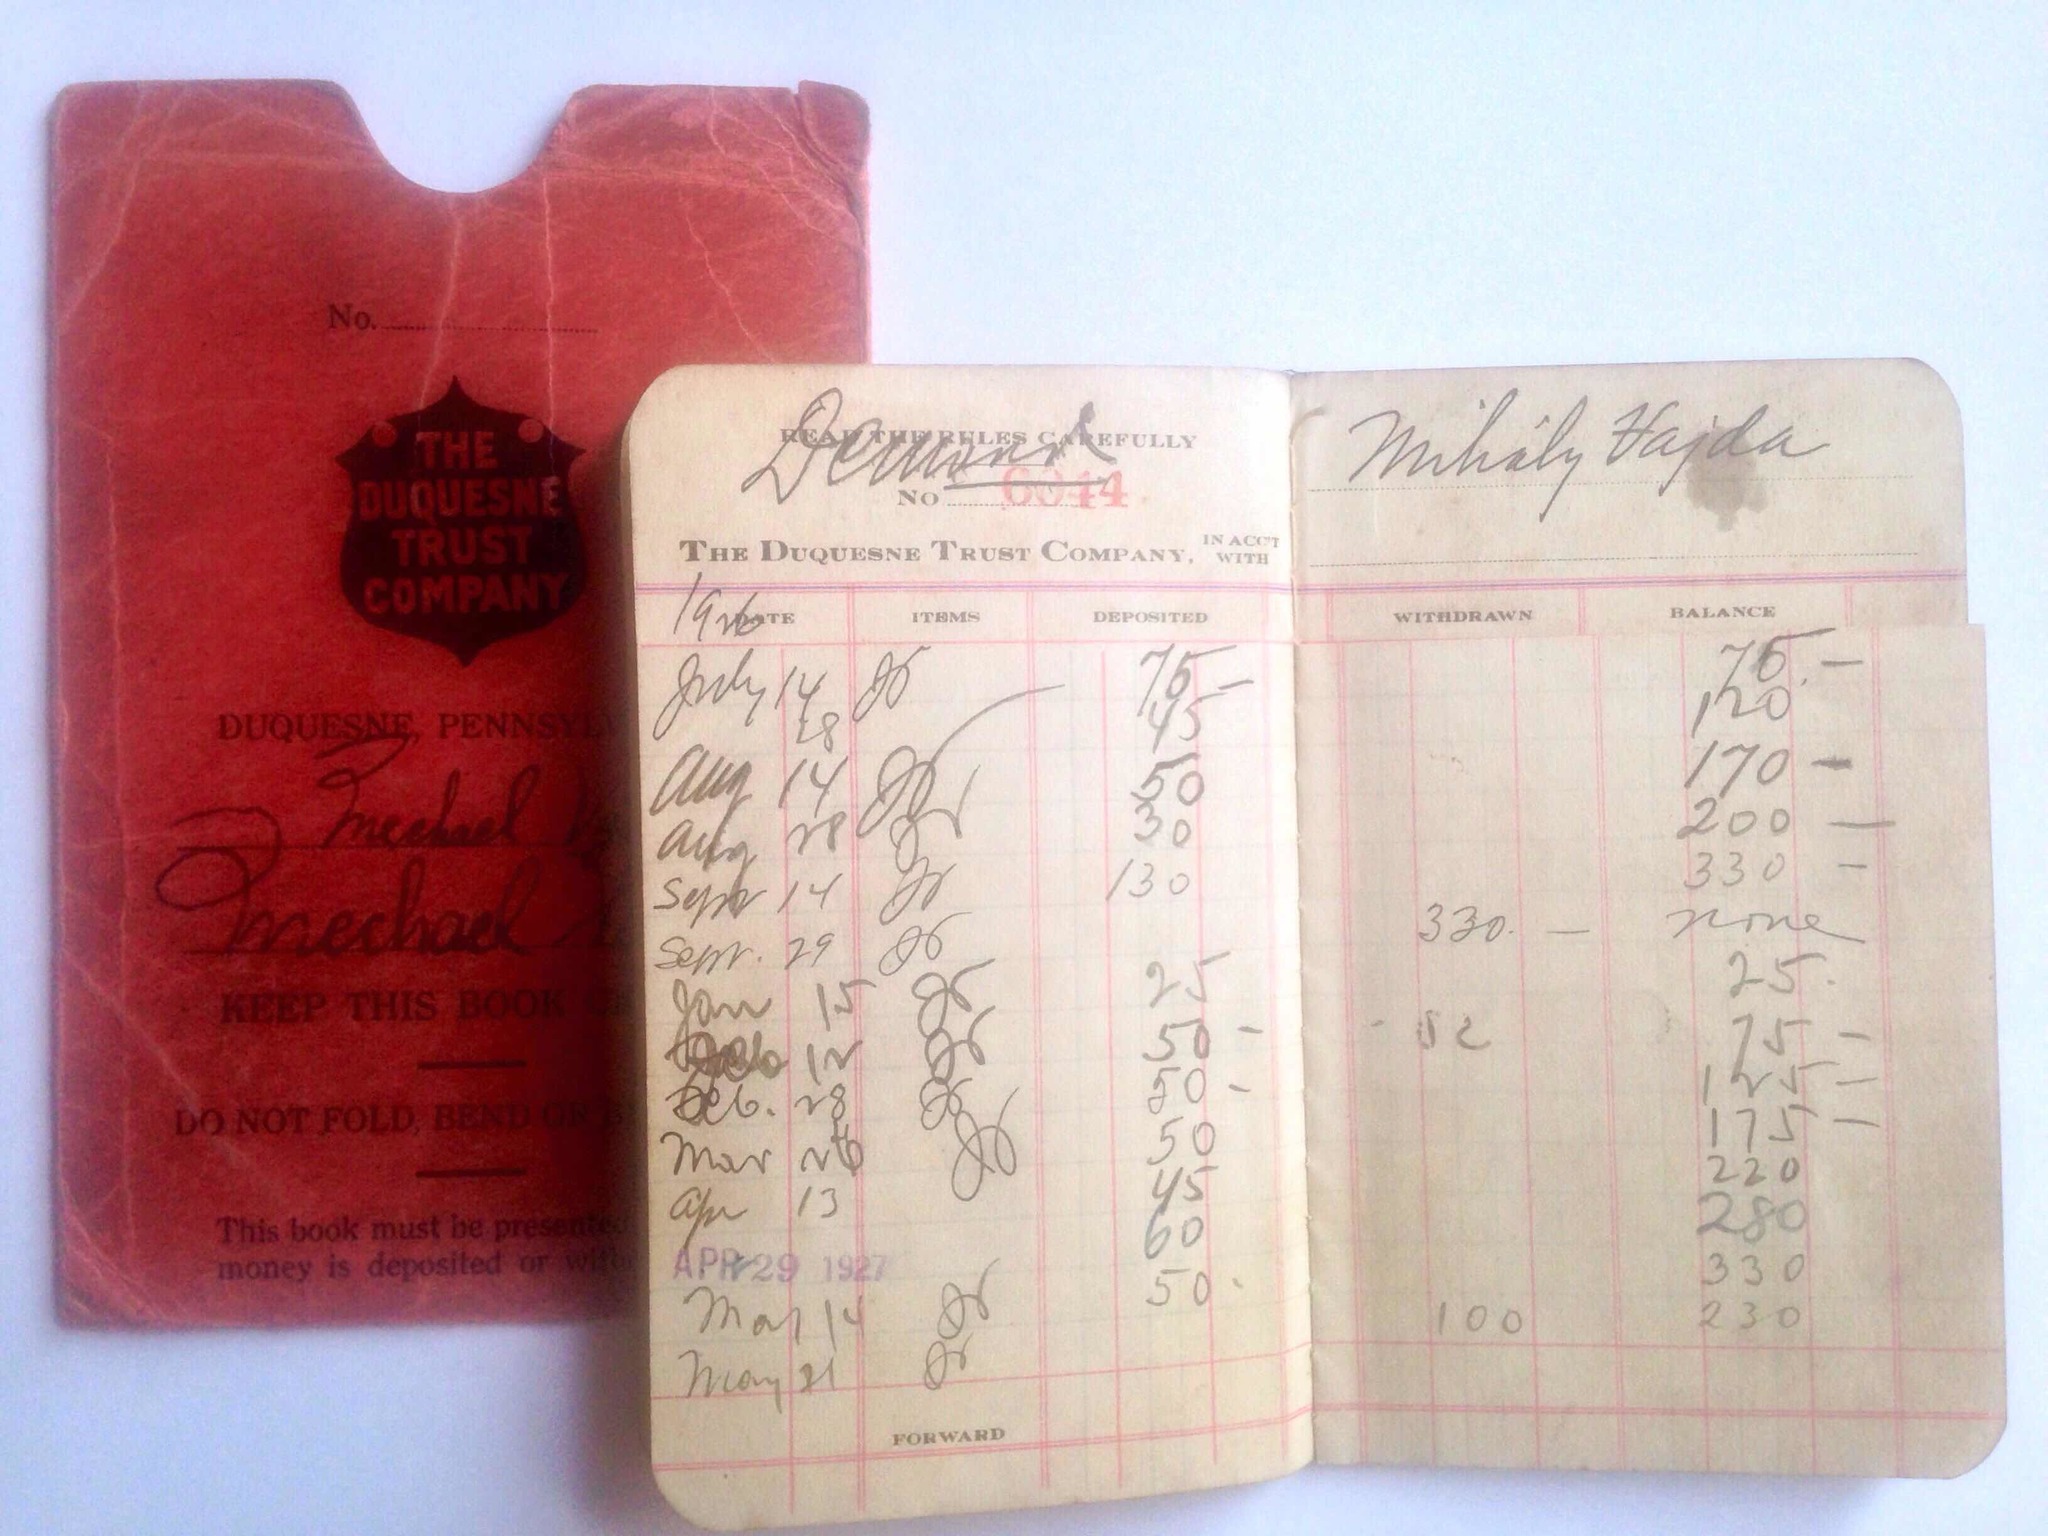 No.
THE
DUQUESNE
TRUST
COMPANY
DUQUESNE, PENNSYL
Mechael
Mechael
KEEP THIS BOOK
DO NOT FOLD, BEND OR
This book must be presented
money is deposited or
READ THE RULES CAREFULLY
Demand
NO 6044
THE DUQUESNE TRUST COMPANY, IN ACC'T WITH
Mihály Vajda
1926
DATE ITEMS DEPOSITED WITHDRAWN BALANCE
July 14 75 — 75. —
28 45 120
Aug 14 50 170 —
Aug 28 30 200 —
Sept 14 130 330 —
Sept. 29 330. — none
Jan 15 25 25.
Feb 12 50 - 75 —
Feb. 28 50 - 125 —
Mar 26 50 175 —
Apr 13 45 220
APR 29 1927 60 280
May 14 50. 330
May 31 100 230
FORWARD